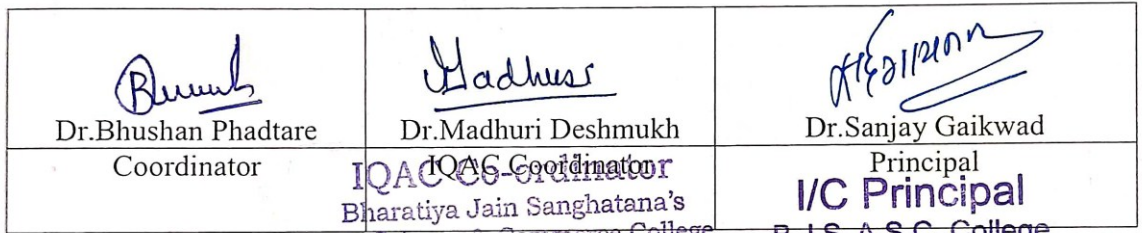 Dr.Bhushan Phadtare
Dr.Madhuri Deshmukh
Dr.Sanjay Gaikwad
Coordinator
IQAC Coordinator
Principal
IQAC Co-ordinator
Bharatiya Jain Sanghatana's
Commerce College
I/C Principal
B.J.S. A.S.C. College